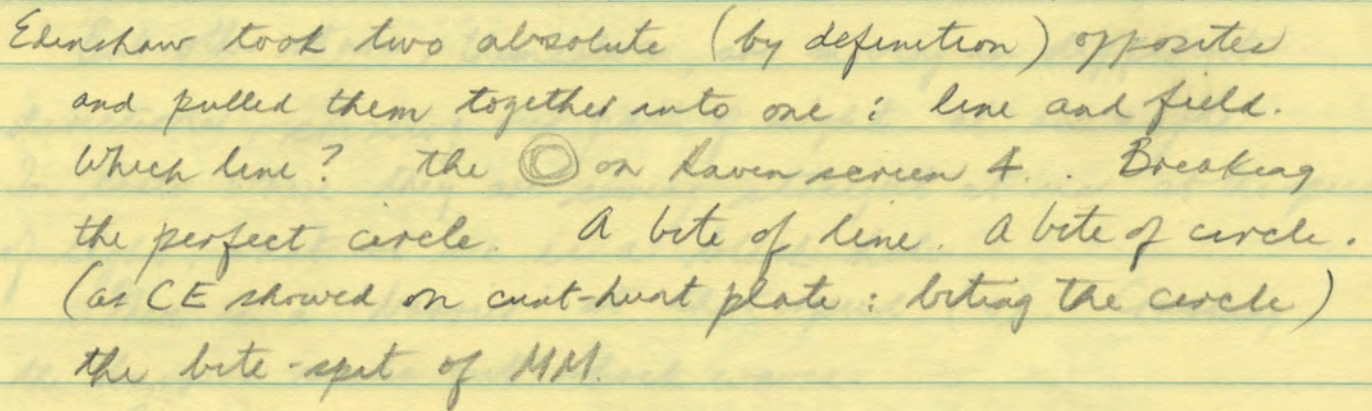 Edenshaw took two absolute (by definition) opposites
and pulled them together into one : line and field.
Which line? the on Raven screen 4. . Breaking
the perfect circle. A bite of line. A bite of circle.
(as CE showed on cunt-hunt plate : biting the circle)
the bite-spit of MM.